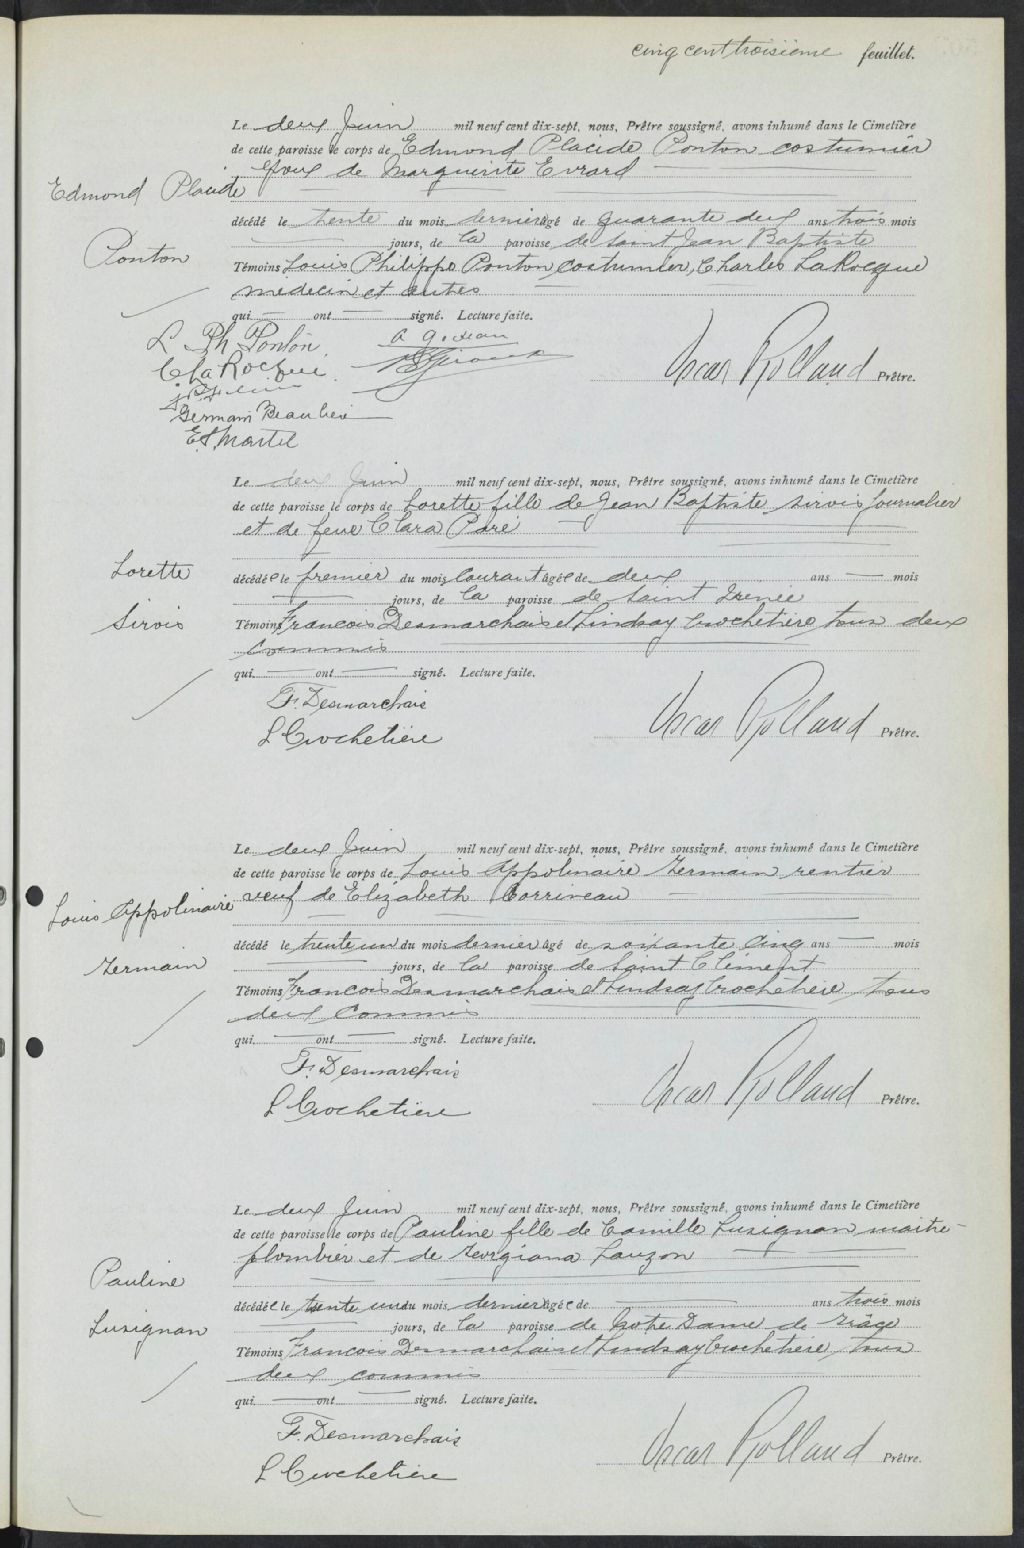 cinq cent troisième feuillet.
Le deux Juin mil neuf cent dix-sept, nous, Prêtre soussigné, avons inhumé dans le Cimetière
de cette paroisse le corps de Edmond Placide Ponton costumier
époux de Marguerite Evrard
Edmond Placide
Ponton
décédé le trente du mois dernier âgé de quarante deux ans trois mois
jours, de la paroisse de Saint Jean Baptiste
Témoins Louis Philippe Ponton, costumier, Charles LaRocque
médecin et autres
qui ont signé. Lecture faite.
L. Ph Ponton
C LaRocque
Germain Beaulieu
E.S. Martel
Oscar Rolland Prêtre.
Le deux Juin mil neuf cent dix-sept, nous, Prêtre soussigné, avons inhumé dans le Cimetière
de cette paroisse le corps de Lorette fille de Jean Baptiste Sirois journalier
et de feue Clara Paré
Lorette
Sirois
décédée le premier du mois courant âgée de deux ans mois
jours, de la paroisse de Saint Irenée
Témoins Francois Desmarchais et Lindsay Crochetière, tous deux
commis
qui ont signé. Lecture faite.
F. Desmarchais
L Crochetière
Oscar Rolland Prêtre.
Le deux Juin mil neuf cent dix-sept, nous, Prêtre soussigné, avons inhumé dans le Cimetière
de cette paroisse le corps de Louis Appolinaire Germain rentier
veuf de Elizabeth Corriveau
Louis Appolinaire
Germain
décédé le trente un du mois dernier âgé de soixante cinq ans mois
jours, de la paroisse de Saint Clément
Témoins Francois Desmarchais et Lindsay Crochetière, tous
deux commis
qui ont signé. Lecture faite.
F. Desmarchais
L Crochetière
Oscar Rolland Prêtre.
Le deux Juin mil neuf cent dix-sept, nous, Prêtre soussigné, avons inhumé dans le Cimetière
de cette paroisse le corps de Pauline fille de Camille Lusignan maitre-
plombier et de Georgiana Lauzon
Pauline
Lusignan
décédée le trente un du mois dernier âgée de ans trois mois
jours, de la paroisse de Notre Dame de Grâce
Témoins Francois Desmarchais et Lindsay Crochetière, tous
deux commis
qui ont signé. Lecture faite.
F. Desmarchais
L Crochetière
Oscar Rolland Prêtre.